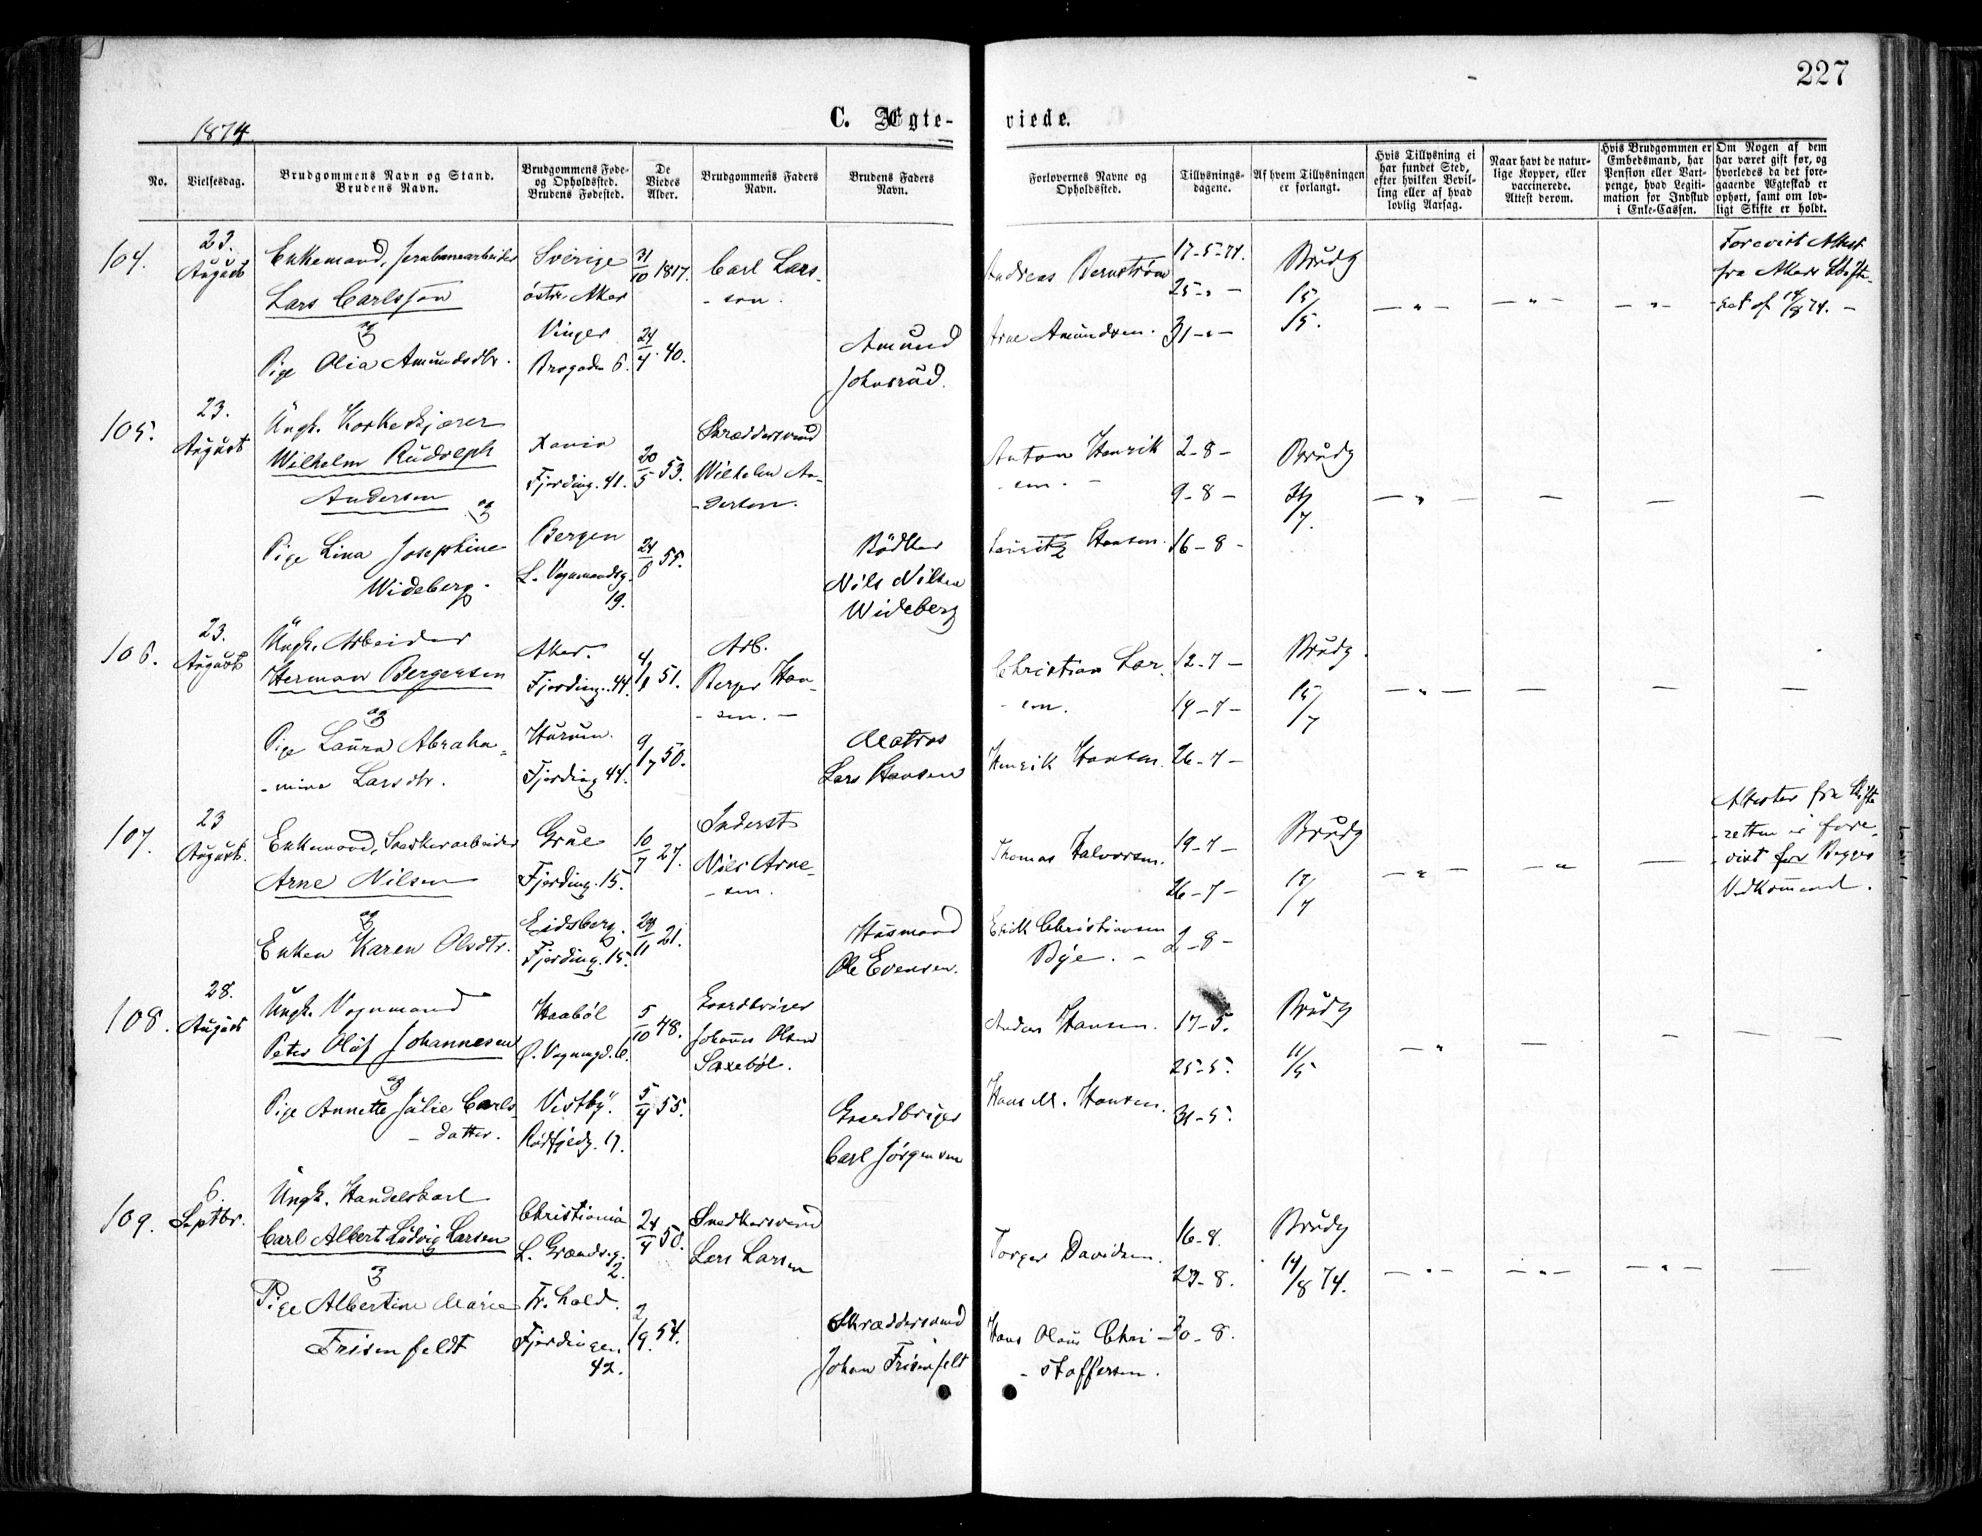 227
1874
C. Ægteviede.
No.
Vielsesdag.
Brudgommens Navn og Stand.
Brudens Navn.
Brudgommens Føde-
og Opholdssted.
Brudens Fødested.
De
Viedes
Alder.
Brudgommens Faders
Navn.
Brudens Faders
Navn.
Forlovernes Navne og
Opholdssted.
Tillysnings-
dagene.
Af hvem Tillysningen
er forlangt.
Hvis Tillysning ei
har fundet Sted,
efter hvilken Bevil-
ling eller af hvad
lovlig Aarsag.
Naar havt de natur-
lige Kopper, eller
vaccinerede.
Attest derom.
Hvis Brudgommen er
Embedsmand, har
Pension eller Vart-
penge, hvad Legiti-
mation for Indskud
i Enke-Cassen.
Om Nogen af dem
har været gift før, og
hvorledes da det fore-
gaaende Ægteskab er
ophørt, samt om lov-
ligt Skifte er holdt.
104.
23.
August
Enkemand, Jernbanearbeider
Lars Carlsson
og
Pige Olia Amundsdtr.
Sverige
østr. Aker
Vinger
Brogaden 6.
31/10 1817.
24/4 40.
Carl Lars-
- son.
Amund
Johnsrud.
Andreas Bernstrøm
Arne Amundsen.
17-5-74.
25-"-
31-"-
Brudg
15/5.
— " —
— " —
— " —
Forevist Attest
fra Akers Skifte-
ret af 14/8 74. —
105.
23.
August
Ungk. Korkeskjærer
Wilhelm Rudolph
Andersen
og
Pige Lina Josephine
Wideberg.
Fjerding. 41.
Bergen
L. Vognmandsg.
19.
20/5 53.
24/6 55.
Skræddersvend
Wilhelm An-
- dersen.
Bødker
Nils Nilsen
Wideberg
Anton Henrik
- sen. -
Lauritz Hansen.
2-8-
9-8-
16-8-
Brudg
— " —
—
—
—
106.
23.
August
Ungk. Arbeider
Herman Bergersen
og
Pige Laura Abraha-
- mine Larsdtr.
Aker.
Fjerding. 44.
Hurum.
Fjerding. 44.
4/1 51.
9/7 50.
Arb.
Berger Han-
- sen. —
Matros
Lars Hansen
Christian Lar-
- sen.
Henrik Hansen.
12-7-
19-7-
26-7-
Brudg.
15/7
— " —
—
—
—
107.
23
August.
Enkemand, Snedkerarbeider
Arne Nilsen
og
Enken Karen Olsdtr.
Grue
Fjerding. 15.
Eidsberg.
Fjerding. 15.
10/7 27.
21.
Inderst
Nils Arne-
- sen.
Husmand
Ole Evensen.
Thomas Halvorsen.
Erik Christiansen
Bye. -
19-7-
26-7-
2-8-
Brudg
17/7
— " —
— " —
—
Attester fra Skifte-
- retten er fore-
- vist for Begges
Vedkommend.
108.
28.
August
Ungk. Vognmand
Peter Oluf Johannesen
og
Pige Annette Julie Carls-
- datter.
Haabøl
Ø. Vognmgd. 6.
Vestby.
Rødfyldg. 17.
5/10 48.
5/4 55.
Gaardbruger
Johannes Olsen
Saxebøl.
Gaardbruger
Carl Jørgensen
Anders Hansen.
Hans M. Hansen.
17-5.
25-5.
31-5.
Brudg
11/5
— " —
—
—
—
109.
6.
Septbr.
Ungk. Handelskarl
Carl Albert Ludvig Larsen
og
Pige Albertine Marie
Frisenfeldt
Christiania
L. Grændsg.
2.
Fr.hald.
Fjerdingen
42.
24/4 50.
2/9. 54.
Snedkersvend
Lars Larsen
Skræddersvend
Johan Frisenfelt
Torger Davidsen.
Hans Olaus Chri-
- stoffersen.
16-8.
23-8.
30-8.
Brudg
14/8 74.
— " —
— " —
— " —
—